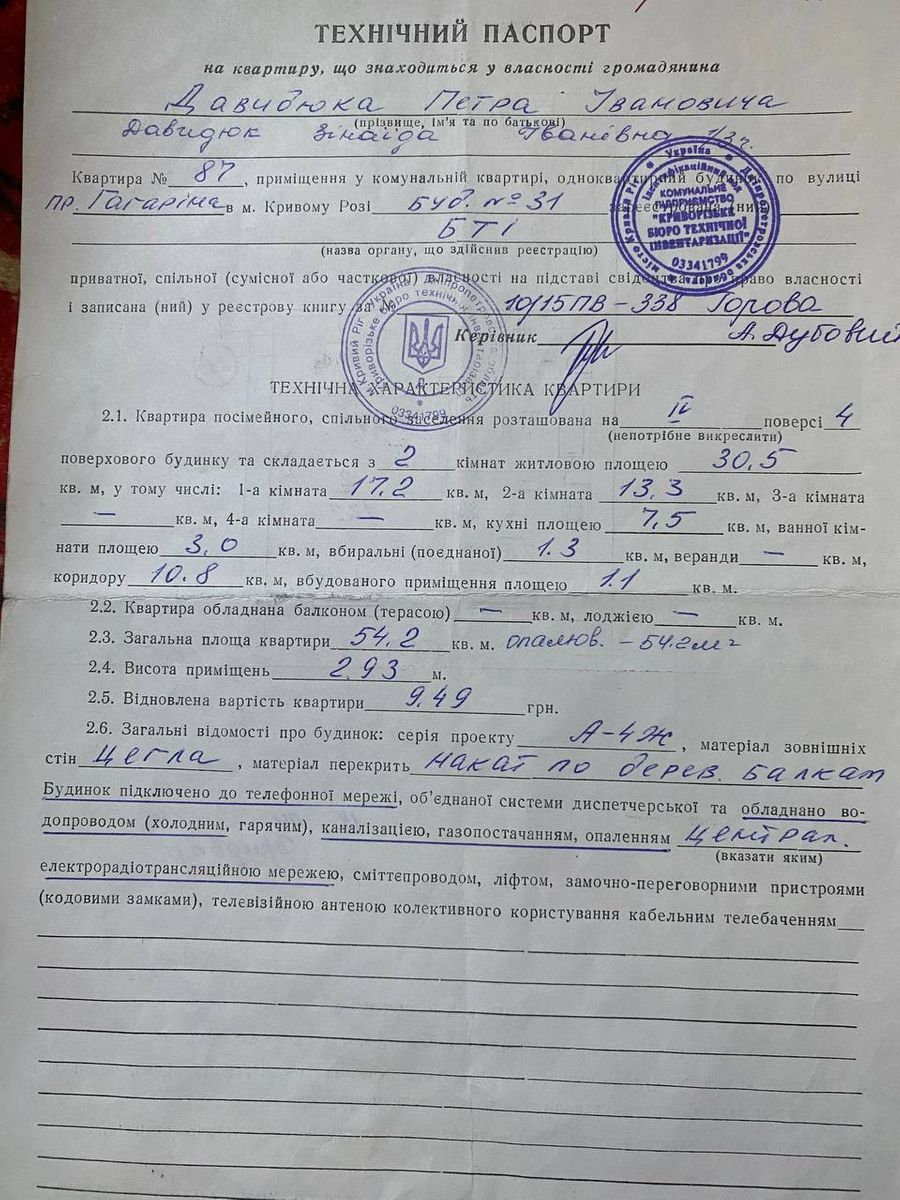 ТЕХНІЧНИЙ ПАСПОРТ
на квартиру, що знаходиться у власності громадянина
Давидюка Петра Івановича
(прізвище, ім'я та по батькові)
Давидюк Зінаїда Іванівна 1/3ч.
Квартира № 87, приміщення у комунальній квартирі, одноквартирний будинок по вулиці
пр. Гагаріна в м. Кривому Розі буд. № 31 зареєстрована (ний)
БТІ
(назва органу, що здійснив реєстрацію)
приватної, спільної (сумісної або часткової) власності на підставі свідоцтва про право власності
і записана (ний) у реєстрову книгу за № 10/15ПВ-338 Горова
Керівник А. Дубовий
Україна Дніпропетровська область місто Кривий Ріг
Ідентифікаційний код
КОМУНАЛЬНЕ
ПІДПРИЄМСТВО
"КРИВОРІЗЬКЕ
БЮРО ТЕХНІЧНОЇ
ІНВЕНТАРИЗАЦІЇ"
03341799
м. Кривий Ріг Україна Дніпропетровська область
Криворізьке бюро технічної інвентаризації
03341799
ТЕХНІЧНА ХАРАКТЕРИСТИКА КВАРТИРИ
2.1. Квартира посімейного, спільного заселення розташована на IV поверсі 4
(непотрібне викреслити)
поверхового будинку та складається з 2 кімнат житловою площею 30,5
кв. м, у тому числі: 1-а кімната 17,2 кв. м, 2-а кімната 13,3 кв. м, 3-а кімната
— кв. м, 4-а кімната — кв. м, кухні площею 7,5 кв. м, ванної кім-
нати площею 3,0 кв. м, вбиральні (поєднаної) 1.3 кв. м, веранди — кв. м,
коридору 10.8 кв. м, вбудованого приміщення площею 1.1 кв. м.
2.2. Квартира обладнана балконом (терасою) — кв. м, лоджією — кв. м.
2.3. Загальна площа квартири 54.2 кв. м. опалюв. - 54.2м²
2.4. Висота приміщень 2.93 м.
2.5. Відновлена вартість квартири 9.49 грн.
2.6. Загальні відомості про будинок: серія проекту А-4Ж, матеріал зовнішніх
стін цегла, матеріал перекрить накат по дерев. балкам
Будинок підключено до телефонної мережі, об'єднаної системи диспетчерської та обладнано во-
допроводом (холодним, гарячим), каналізацією, газопостачанням, опаленням централ.
(вказати яким)
електрорадіотрансляційною мережею, сміттєпроводом, ліфтом, замочно-переговорними пристроями
(кодовими замками), телевізійною антеною колективного користування кабельним телебаченням